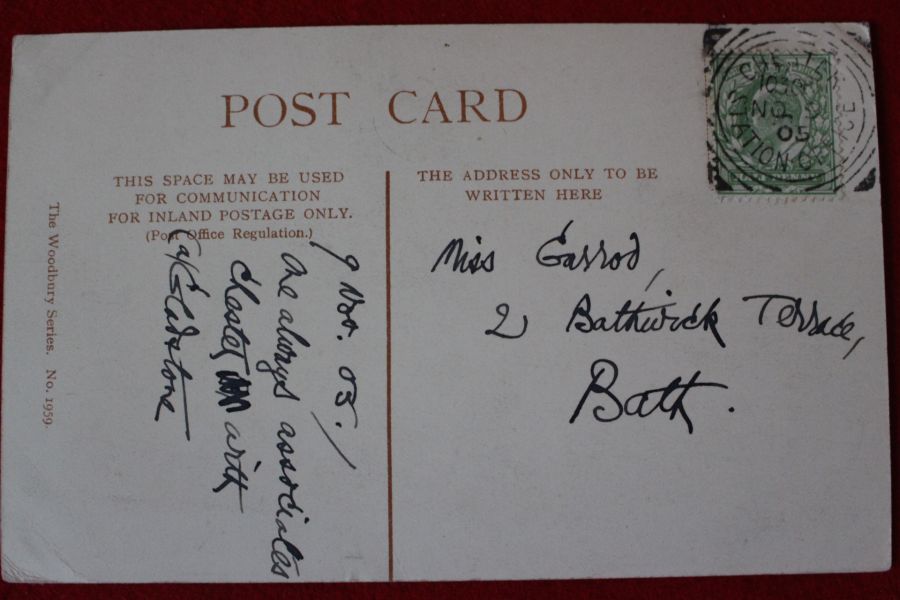 POST CARD
THIS SPACE MAY BE USED
FOR COMMUNICATION
FOR INLAND POSTAGE ONLY.
(Post Office Regulation.)
THE ADDRESS ONLY TO BE
WRITTEN HERE
The Woodbury Series. No. 1959.
9 Nov. 05.
One always associates
Chester with
Gladstone
Miss Garrod,
2 Bathwick Terrace,
Bath.
CHESTER
NO 9
05
STATION OFFICE